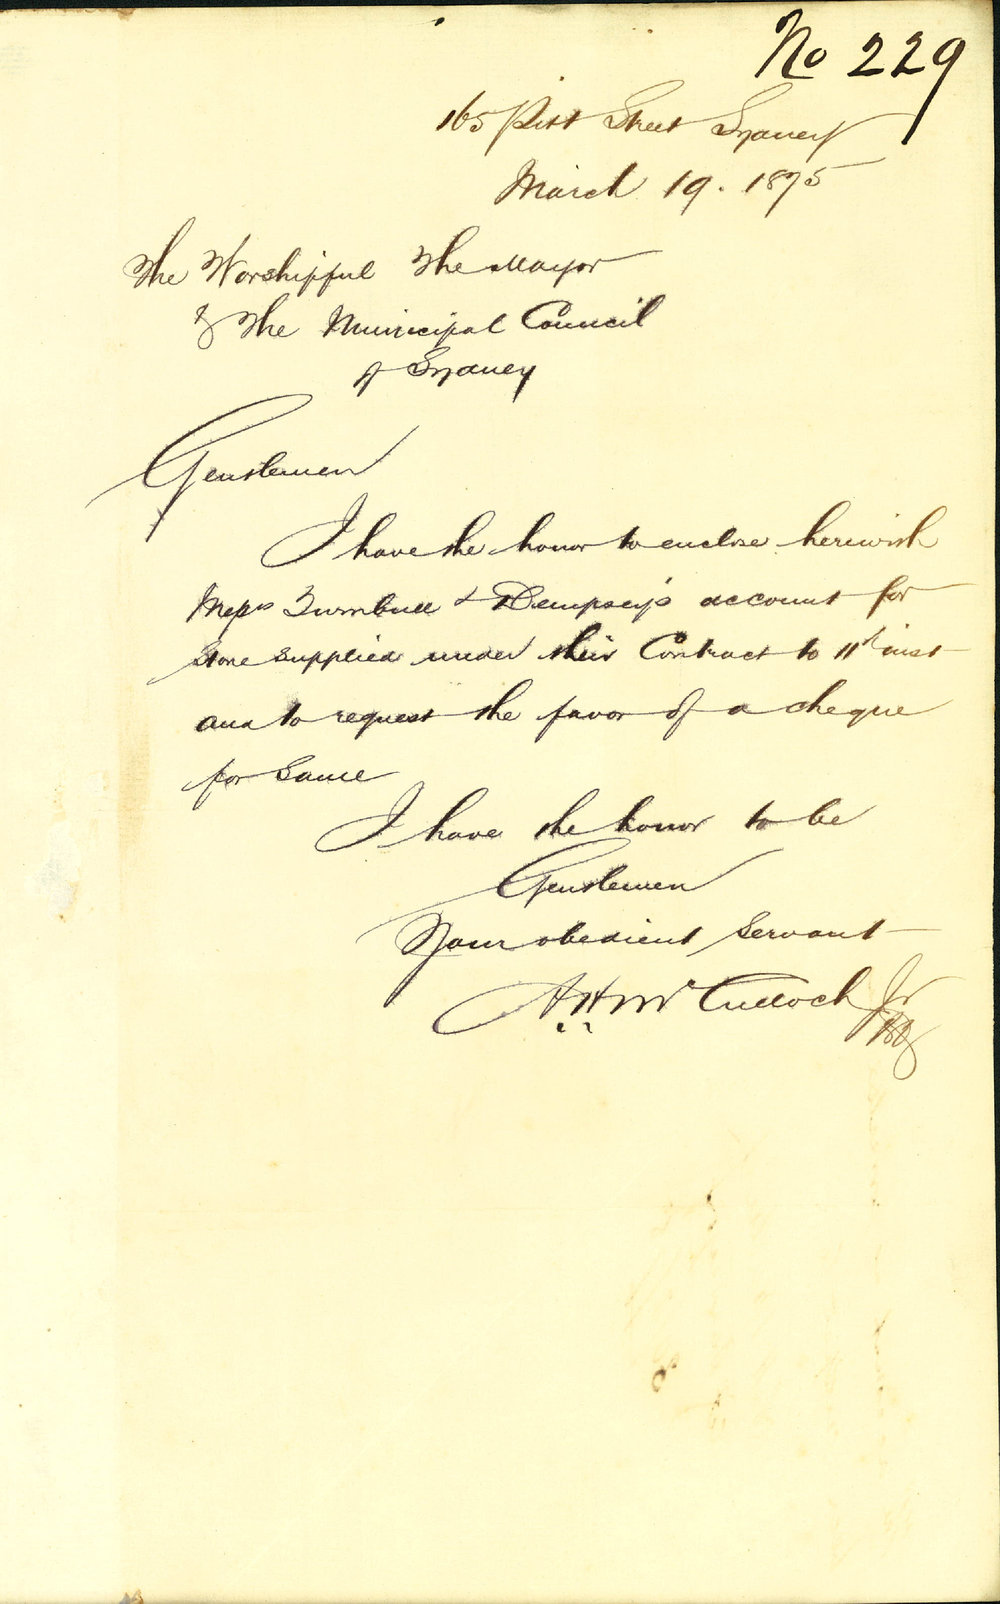 No 229
165 Pitt Street Sydney
March 19. 1875
The Worshipful The Mayor
& The Municipal Council
of Sydney
Gentlemen
I have the honor to enclose herewith
Messrs Turnbull & Dempsey's account for
Stone supplied under their Contract to 11th inst
and to request the favor of a cheque
for Same
I have the honor to be
Gentlemen
Your obedient Servant
A H McCulloch Jr